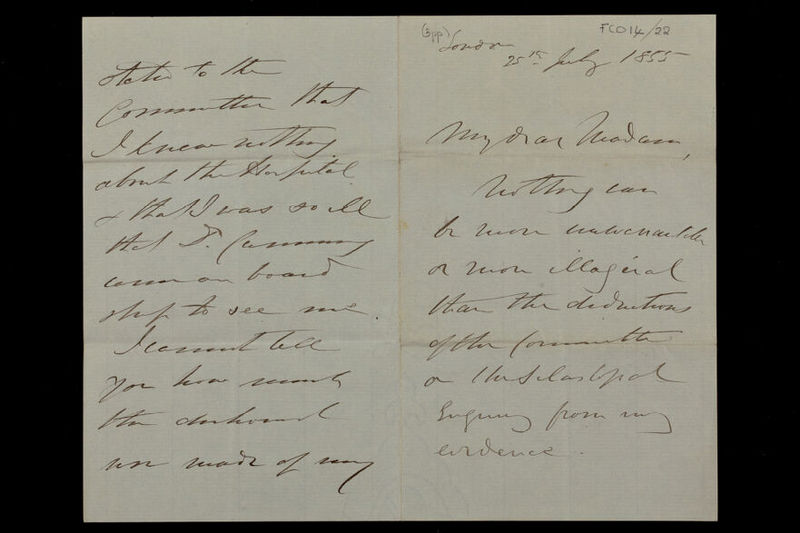 (3pp)
FCO14/22
London
25th July 1855
My dear Madam,
Nothing can
be more uncharitable
or more illogical
than the deductions
of the Committee
on the Sebastopol
Enquiry from my
evidence.
stated to the
Committee that
I knew nothing
about the Hospital
& that I was so ill
that Dr. Cumming
came on board
ship to see me.
I cannot tell
you how much
the dishonest
use made of my